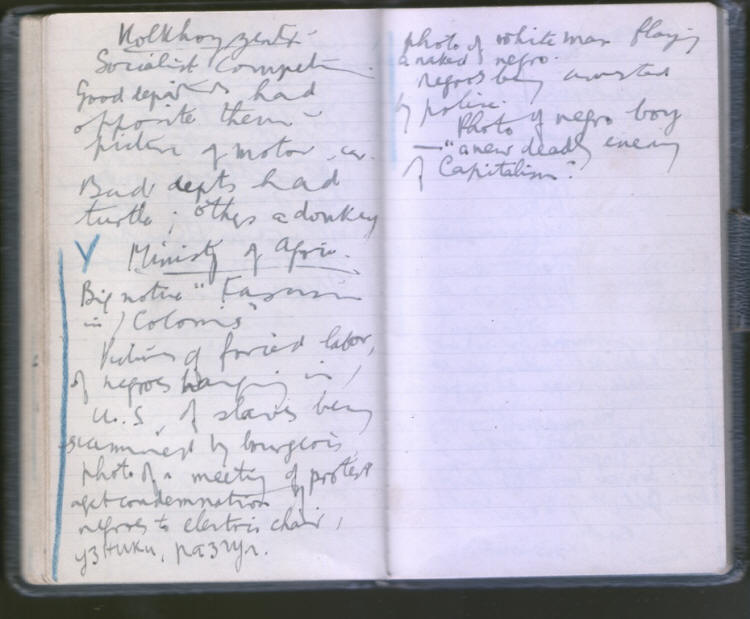 Kolkhozzentr.
Socialist Compet
Good depts had
opposite them
picture of motor car.
Bad depts had
turtle; others a donkey
Ministry of Agric.
Big notice "Fascism
in Colonies"
Victims of forced labor,
of negroes hanging in
U.S., of slaves being
examined by bourgeois,
photo of a meeting of protest
agst condemnation of
negroes to electric chair,
узники, разгул.
photo of white man flaying
a naked negro.
Negroes being arrested
by police.
Photo of negro boy
— "a new deadly enemy
of Capitalism".